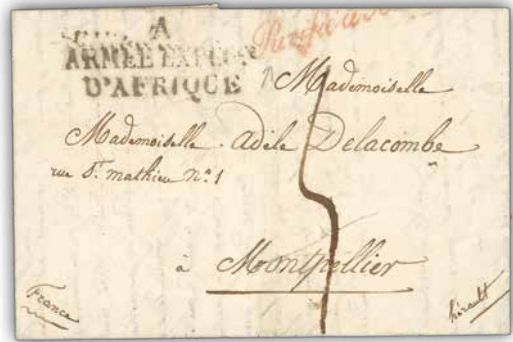 A
ARMÉE EXPÉD
D'AFRIQUE
Mademoiselle
Mademoiselle adèle Delacombe
rue St. mathieu n.° 1
à Montpellier
France
hérault
5